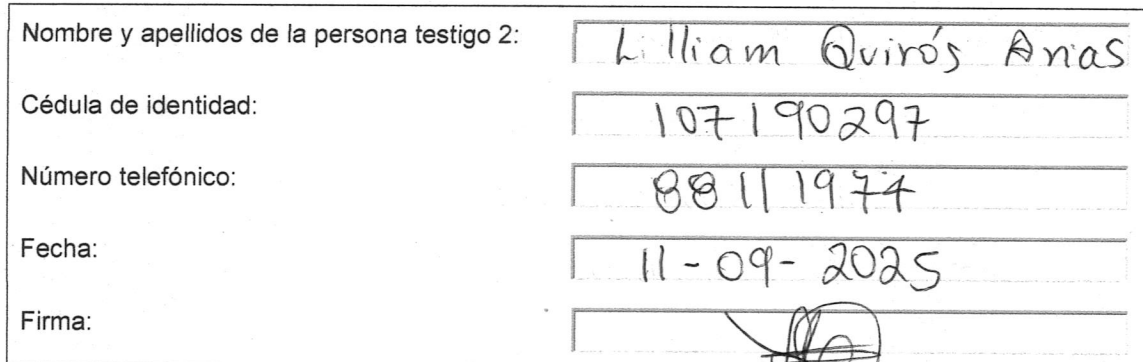 Nombre y apellidos de la persona testigo 2: Lilliam Quirós Arias
Cédula de identidad: 107190297
Número telefónico: 88111974
Fecha: 11-09-2025
Firma: